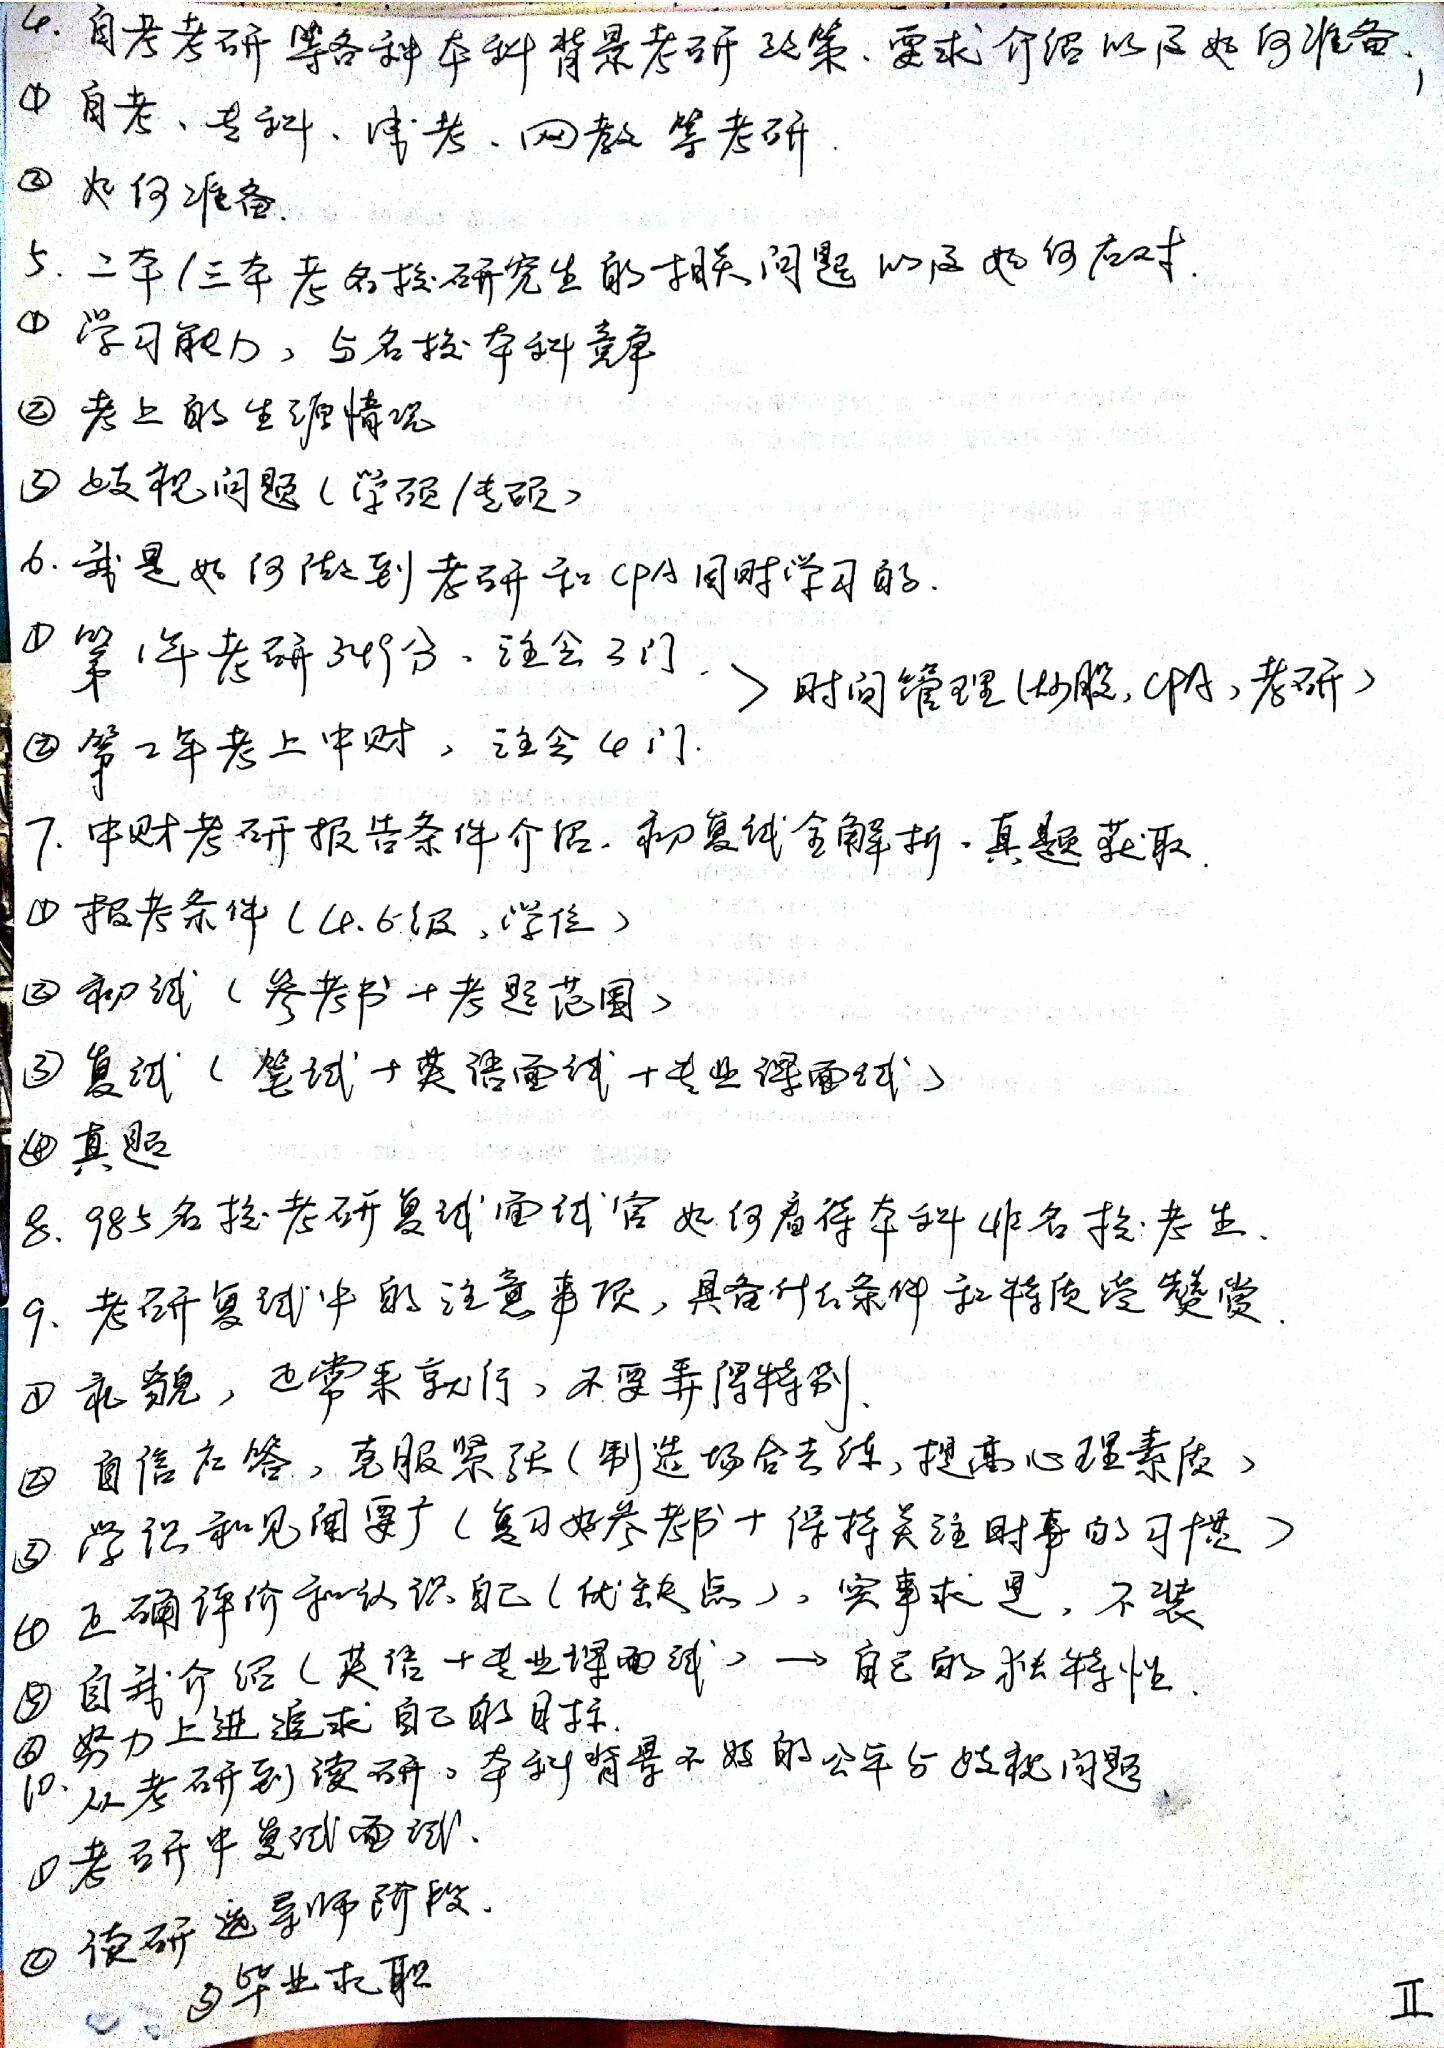 4. 自考考研等各种本科背景考研政策、要求介绍以及如何准备,
① 自考、专科、成考、网教等考研.
② 如何准备.
5. 二本/三本考名校研究生的相关问题以及如何应对.
① 学习能力,与名校本科竞争
② 考上的生源情况
③ 歧视问题(学硕/专硕)
6. 我是如何做到考研和CPA同时学习的.
① 第1年考研349分、注会3门.
> 时间管理(炒股,CPA,考研)
② 第二年考上中财,注会4门.
7. 中财考研报告条件介绍.初复试全解析.真题获取.
① 报考条件(4.6级、学位)
② 初试(参考书+考题范围)
③ 复试(笔试+英语面试+专业课面试)
④ 真题
8. 985名校考研复试面试官如何看待本科非名校考生.
9. 考研复试中的注意事项,具备什么条件和特质受赞赏.
① 礼貌,正常来就行,不要弄得特别.
② 自信应答,克服紧张(制造场合去练,提高心理素质)
③ 学识和见闻要广(复习好参考书+保持关注时事的习惯)
④ 正确评价和认识自己(优缺点),实事求是,不装
⑤ 自我介绍(英语+专业课面试)→自己的独特性.
⑥ 努力上进追求自己的目标.
10. 从考研到读研。本科背景不好的公平与歧视问题
① 考研中复试面试.
② 读研选导师阶段.
③ 毕业求职
II